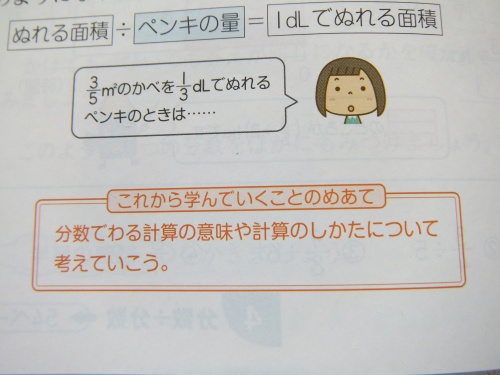 ぬれる面積 ÷ ペンキの量 = 1dLでぬれる面積
3/5 m²のかべを 1/3 dLでぬれる
ペンキのときは……
これから学んでいくことのめあて
分数でわる計算の意味や計算のしかたについて
考えていこう。
4 分数÷分数